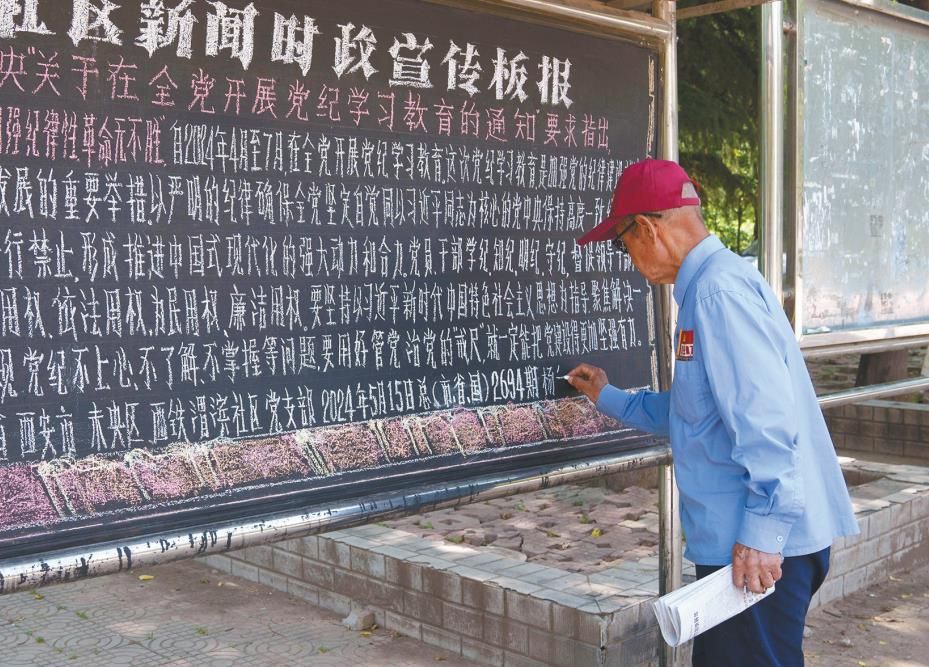 社区新闻时政宣传板报
央“关于在全党开展党纪学习教育的通知”要求指出,
强纪律性革命无不胜”.自2024年4月至7月在全党开展党纪学习教育.这次党纪学习教育是加强党的纪律建设
发展的重要举措.以严明的纪律确保全党坚定自觉同以习近平同志为核心的党中央保持高度一致
行禁止,形成推进中国式现代化的强大动力和合力.党员、干部学纪、知纪、明纪、守纪,督促领导干部
用权、依法用权、为民用权、廉洁用权.要坚持以习近平新时代中国特色社会主义思想为指导,聚焦解决一
党纪不上心、不了解、不掌握等问题,要用好管党治党的“戒尺”,就一定能把党建设得更加坚强有力.
西安市 未央区 西铁渭滨社区党支部 2024年5月15日总(京、省、国)2694期 杨